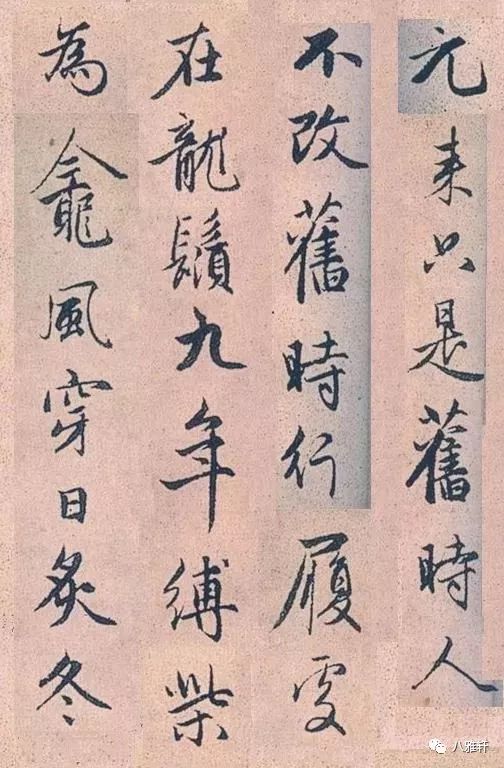 元来只是舊時人
不改舊時行履處
在龍鬚九年縛柴
為龕風穿日炙冬
八雅轩